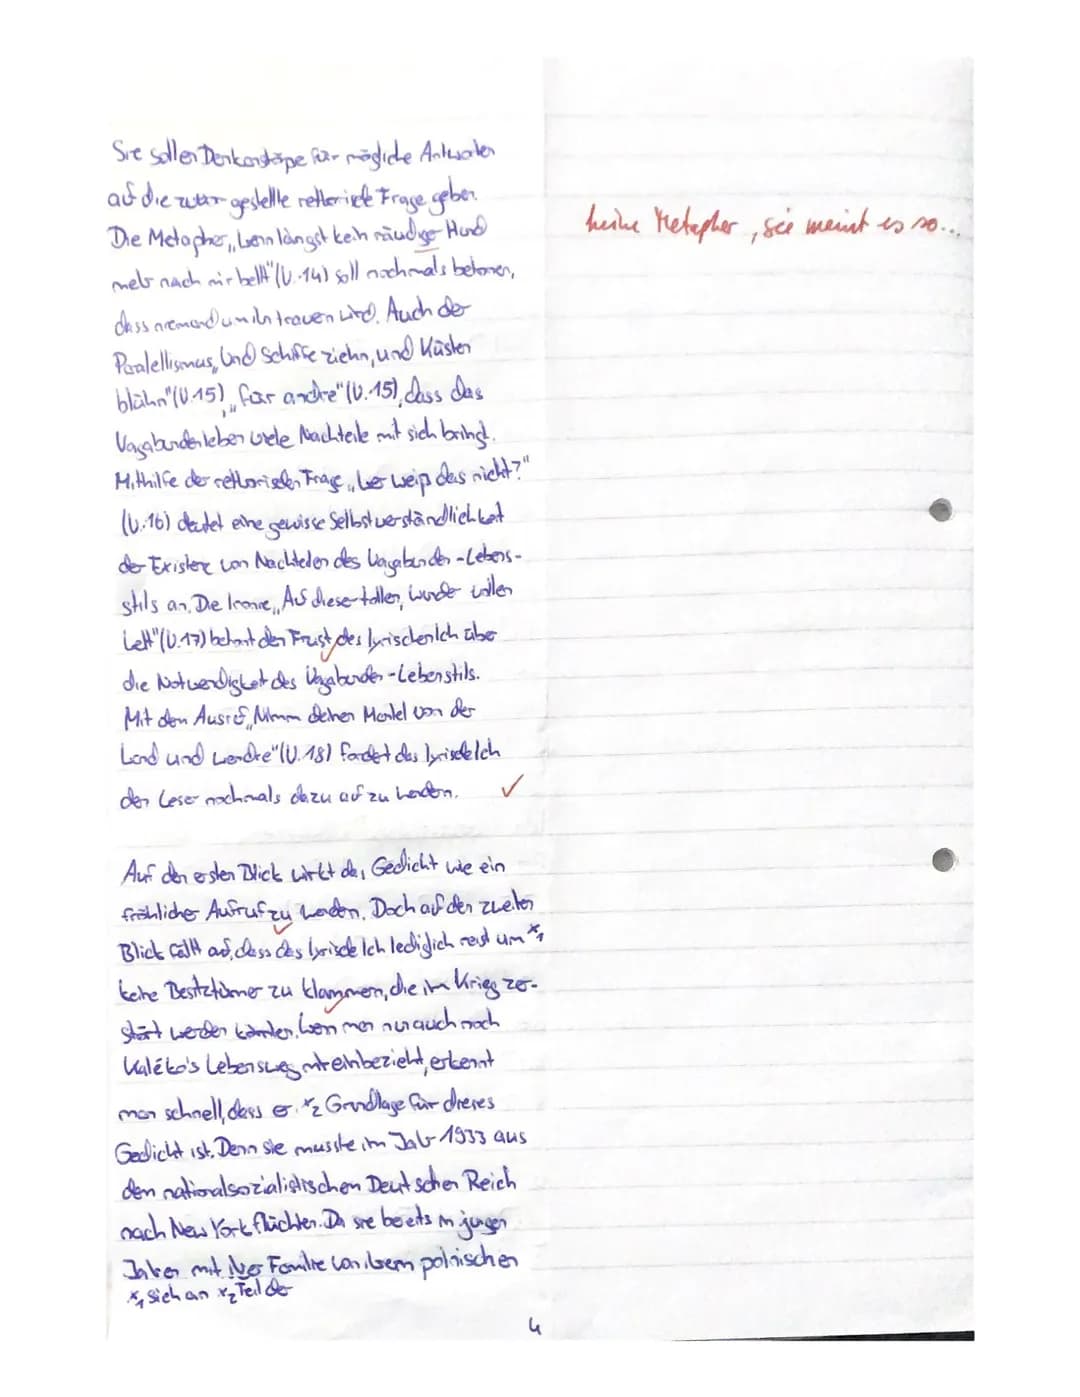 Sie sollen Denkanstöpe für mögliche Antworten
auf die zuvor gestellte rethorische Frage geben.
Die Metapher „Wenn längst kein räudiger Hund
mehr nach mir bellt" (V.14) soll nochmals betonen,
dass niemand um ihn trauen wird. Auch der
Paralellismus „Und Schiffe ziehn, und Küsten
blühn" (V.15) „für andre" (V.15), dass das
Vagabundenleben viele Nachteile mit sich bringt.
Mithilfe der rethorischen Frage „Wer weip das nicht?"
(V.16) deutet eine gewisse Selbstverständlichkeit
der Existenz von Nachteilen des Vagabunden-Lebens-
stils an. Die Ironie „Auf dieser tollen, wunder vollen
Welt" (V.17) betont den Frust des lyrischen Ich über
die Notwendigkeit des Vagabunden-Lebenstils.
Mit dem Ausruf „Nimm deinen Mantel von der
Wand und wandre" (V.18) fordet das lyrische Ich
den Leser nochmals dazu auf zu wandern.
Auf den ersten Blick wirkt das Gedicht wie ein
fröhlicher Aufruf zu wandern. Doch auf den zweiten
Blick fällt auf, dass das lyrische Ich lediglich reist um *1
keine Besitztümer zu klammern, die im Krieg zer-
stört werden könnten. Wenn man nun auch noch
Kaléko's Lebensweg miteinbezieht, erkennt
man schnell, dass er *2 Grundlage für dieses
Gedicht ist. Denn sie musste im Jahr 1933 aus
dem nationalsozialistischen Deutschen Reich
nach New York flüchten. Da sie bereits in jungen
Jahren mit ihrer Familie von ihrem polnischen
*1 sich an *2 Teil der
4
keine Metapher, sie meint es so...